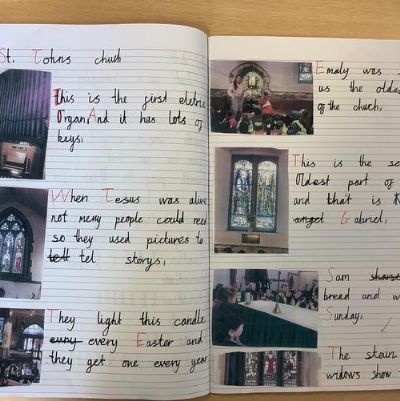 St. Johns chuch
This is the first eletric
Organ, And it has lots of
keys.
When Jesus was alive
not meny people could reed
so they used pictures to
tell tel storys.
They light this candle
evry every Easter and
they get one every year
Emaly was
us the oldes
of the church.
This is the se
Oldest part of
and that is
angel Gabriel.
Sam
bread and w
Sunday.
The stain
widows show